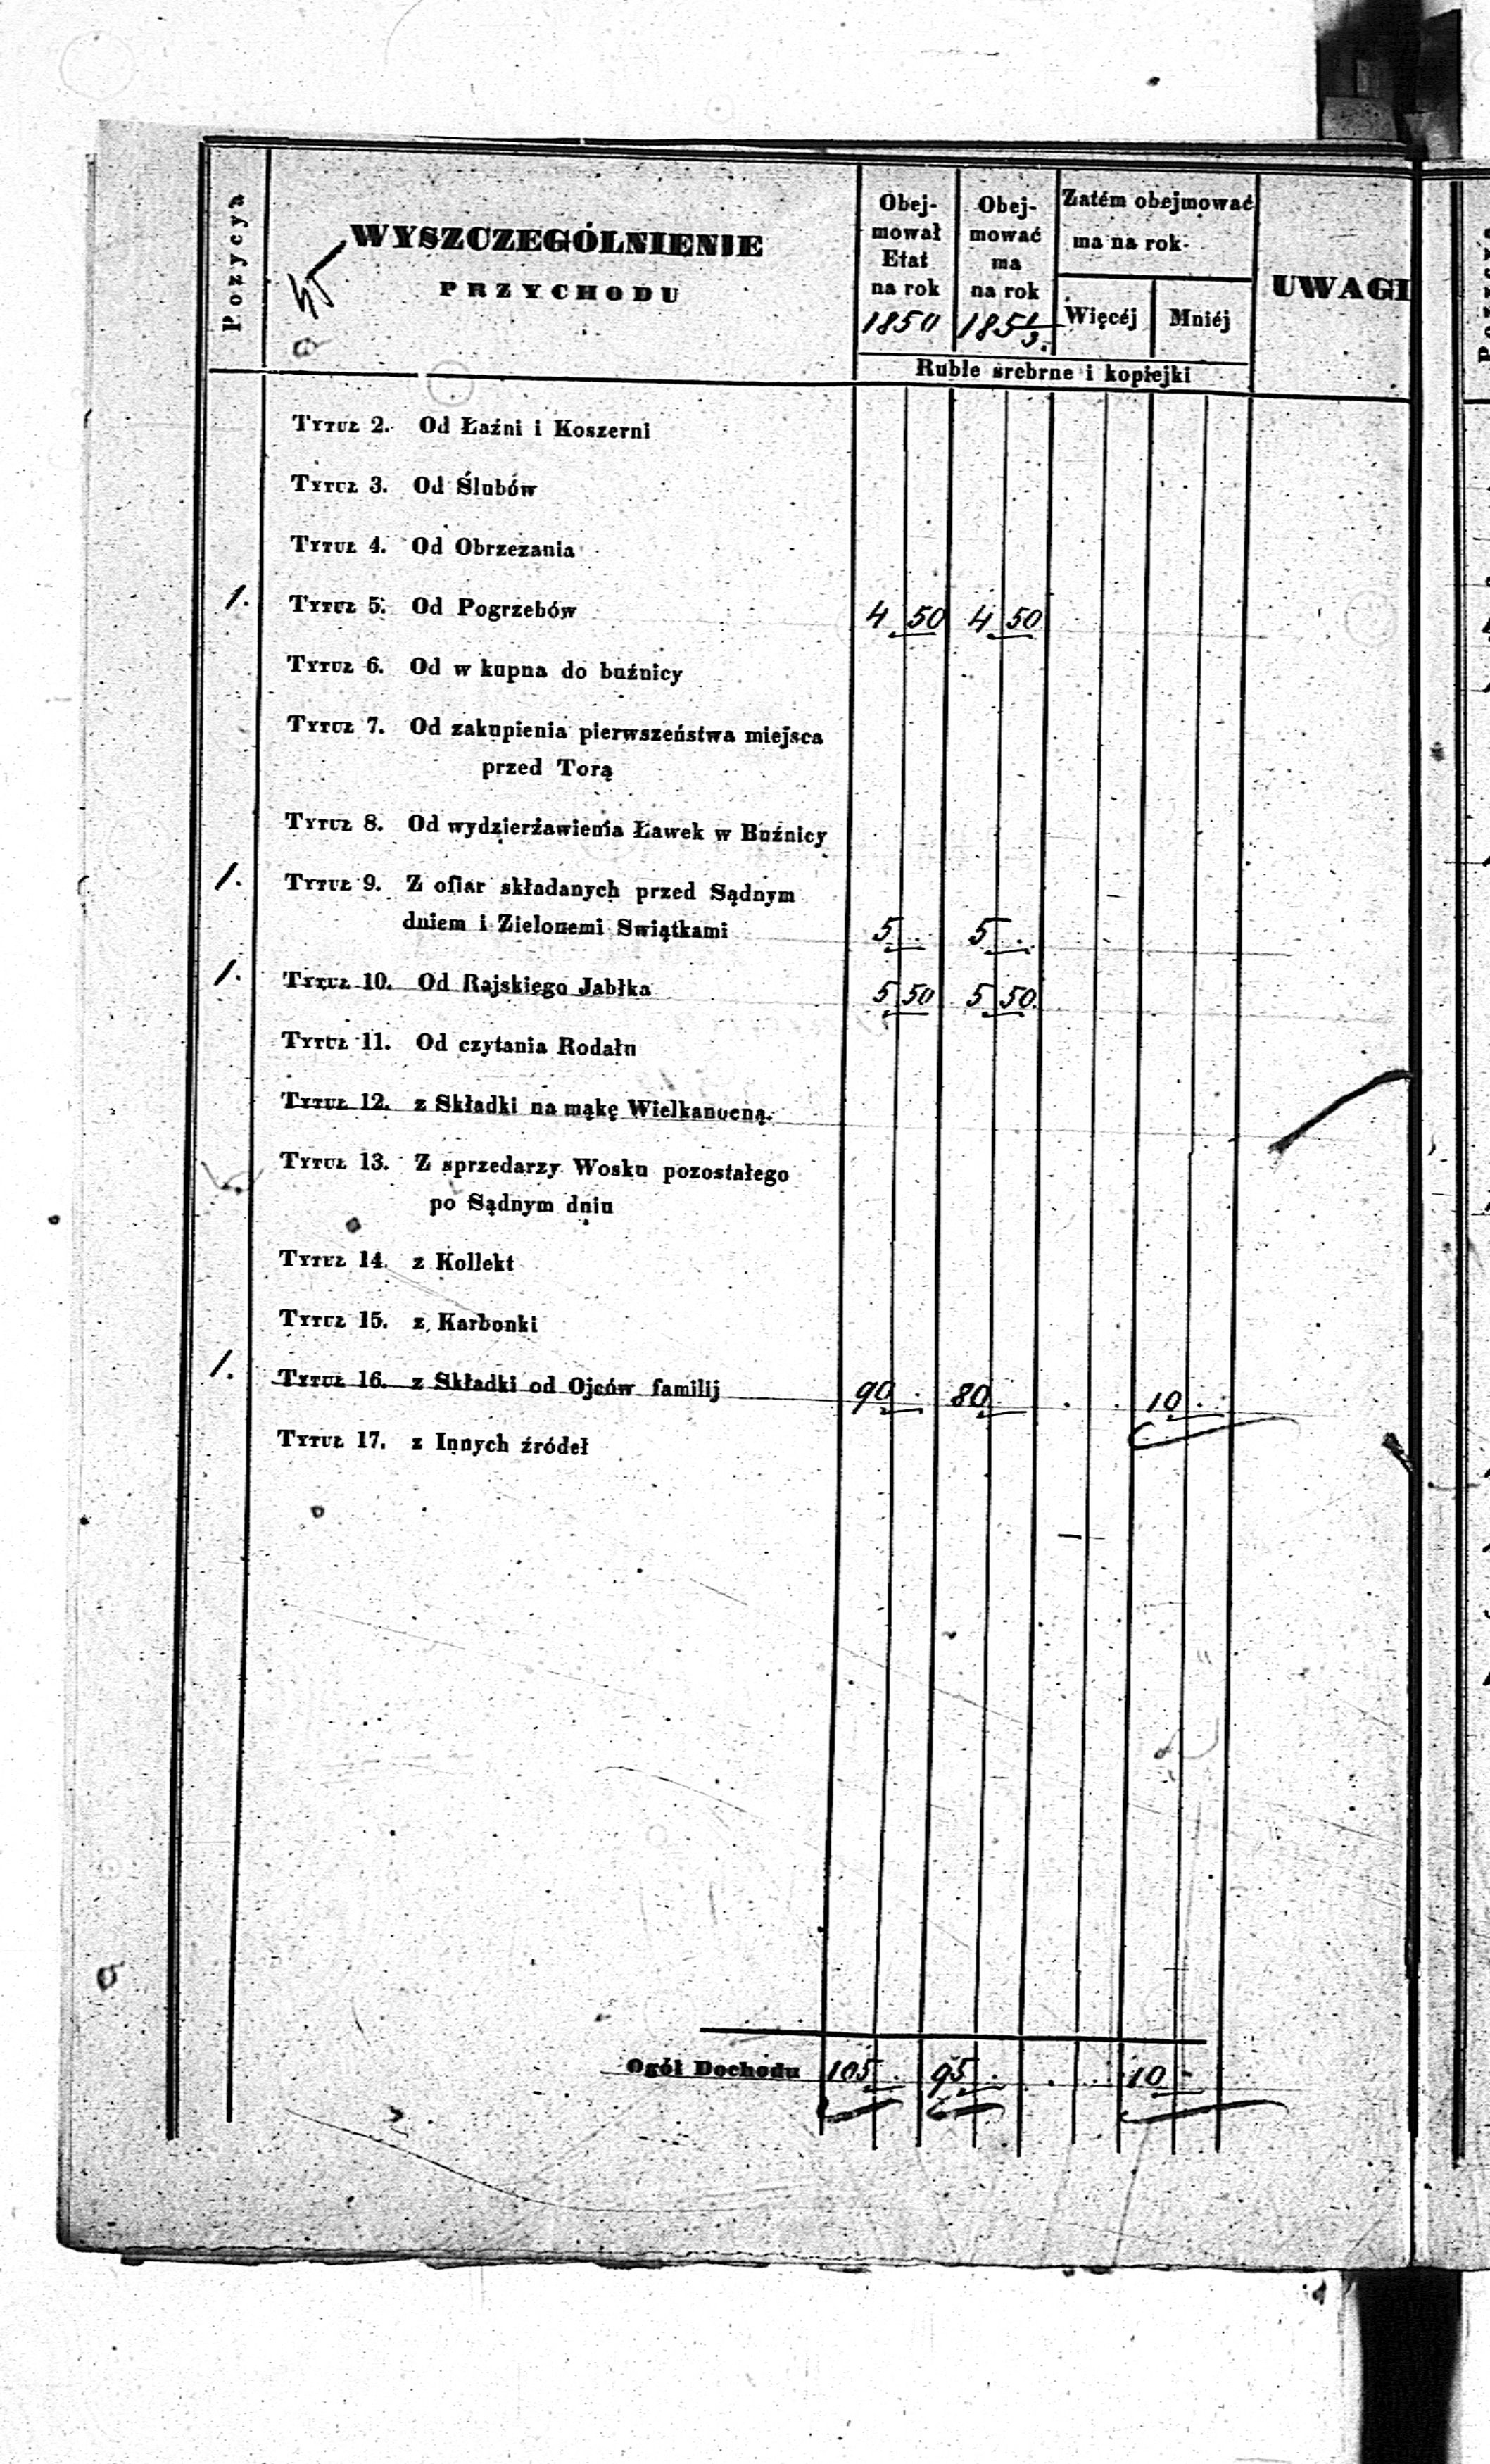 Pozycya
WYSZCZEGÓLNIENIE
PRZYCHODU
Obej-
mował
Etat
na rok
1850
Obej-
mować
ma
na rok
Zatém obejmować
ma na rok
Więcéj
Mniéj
UWAGI
Ruble srebrne i kopiejki
Tytuł 2. Od Łaźni i Koszerni
Tytuł 3. Od Ślubów
Tytuł 4. Od Obrzezania
1. Tytuł 5. Od Pogrzebów 4 50 4 50
Tytuł 6. Od w kupna do buźnicy
Tytuł 7. Od zakupienia pierwszeństwa miejsca
przed Torą
Tytuł 8. Od wydzierżawienia Ławek w Buźnicy
1. Tytuł 9. Z ofiar składanych przed Sądnym
dniem i Zielonemi Swiątkami 5 . 5 .
1. Tytuł 10. Od Rajskiego Jabłka 5 50 5 50
Tytuł 11. Od czytania Rodału
Tytuł 12. z Składki na mąkę Wielkanocną.
Tytuł 13. Z sprzedarzy Wosku pozostałego
po Sądnym dniu
Tytuł 14. z Kollekt
Tytuł 15. z Karbonki
1. Tytuł 16. z Składki od Ojców familij 90 . 80 . . 10 .
Tytuł 17. z Innych źródeł
Ogół Dochodu 105 . 95 . . . 10 -